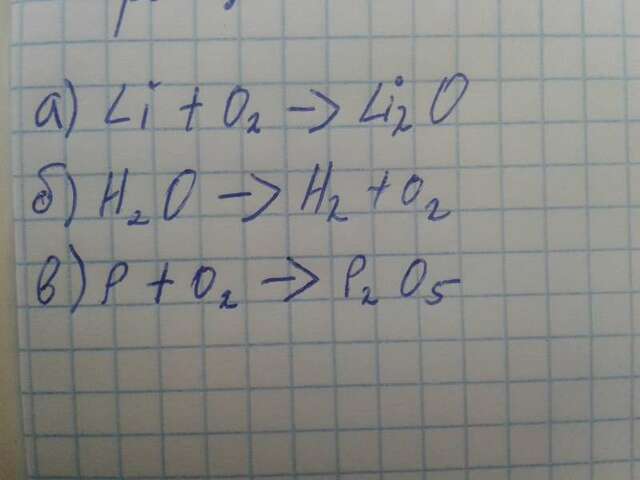 а) Li + O₂ → Li₂O
б) H₂O → H₂ + O₂
в) P + O₂ → P₂O₅